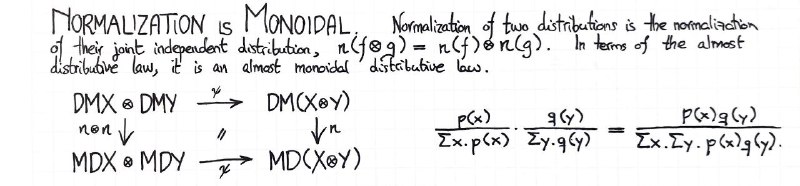 NORMALIZATION IS MONOIDAL. Normalization of two distributions is the normalization
of their joint independent distribution, n(f⊗g) = n(f)⊗n(g). In terms of the almost
distributive law, it is an almost monoidal distributive law.
DMX ⊗ DMY —ψ→ DM(X⊗Y)
n⊗n ↓ // ↓n
MDX ⊗ MDY —ψ→ MD(X⊗Y)
p(x)/Σx.p(x) · g(y)/Σy.g(y) = p(x)g(y)/Σx.Σy.p(x)g(y).